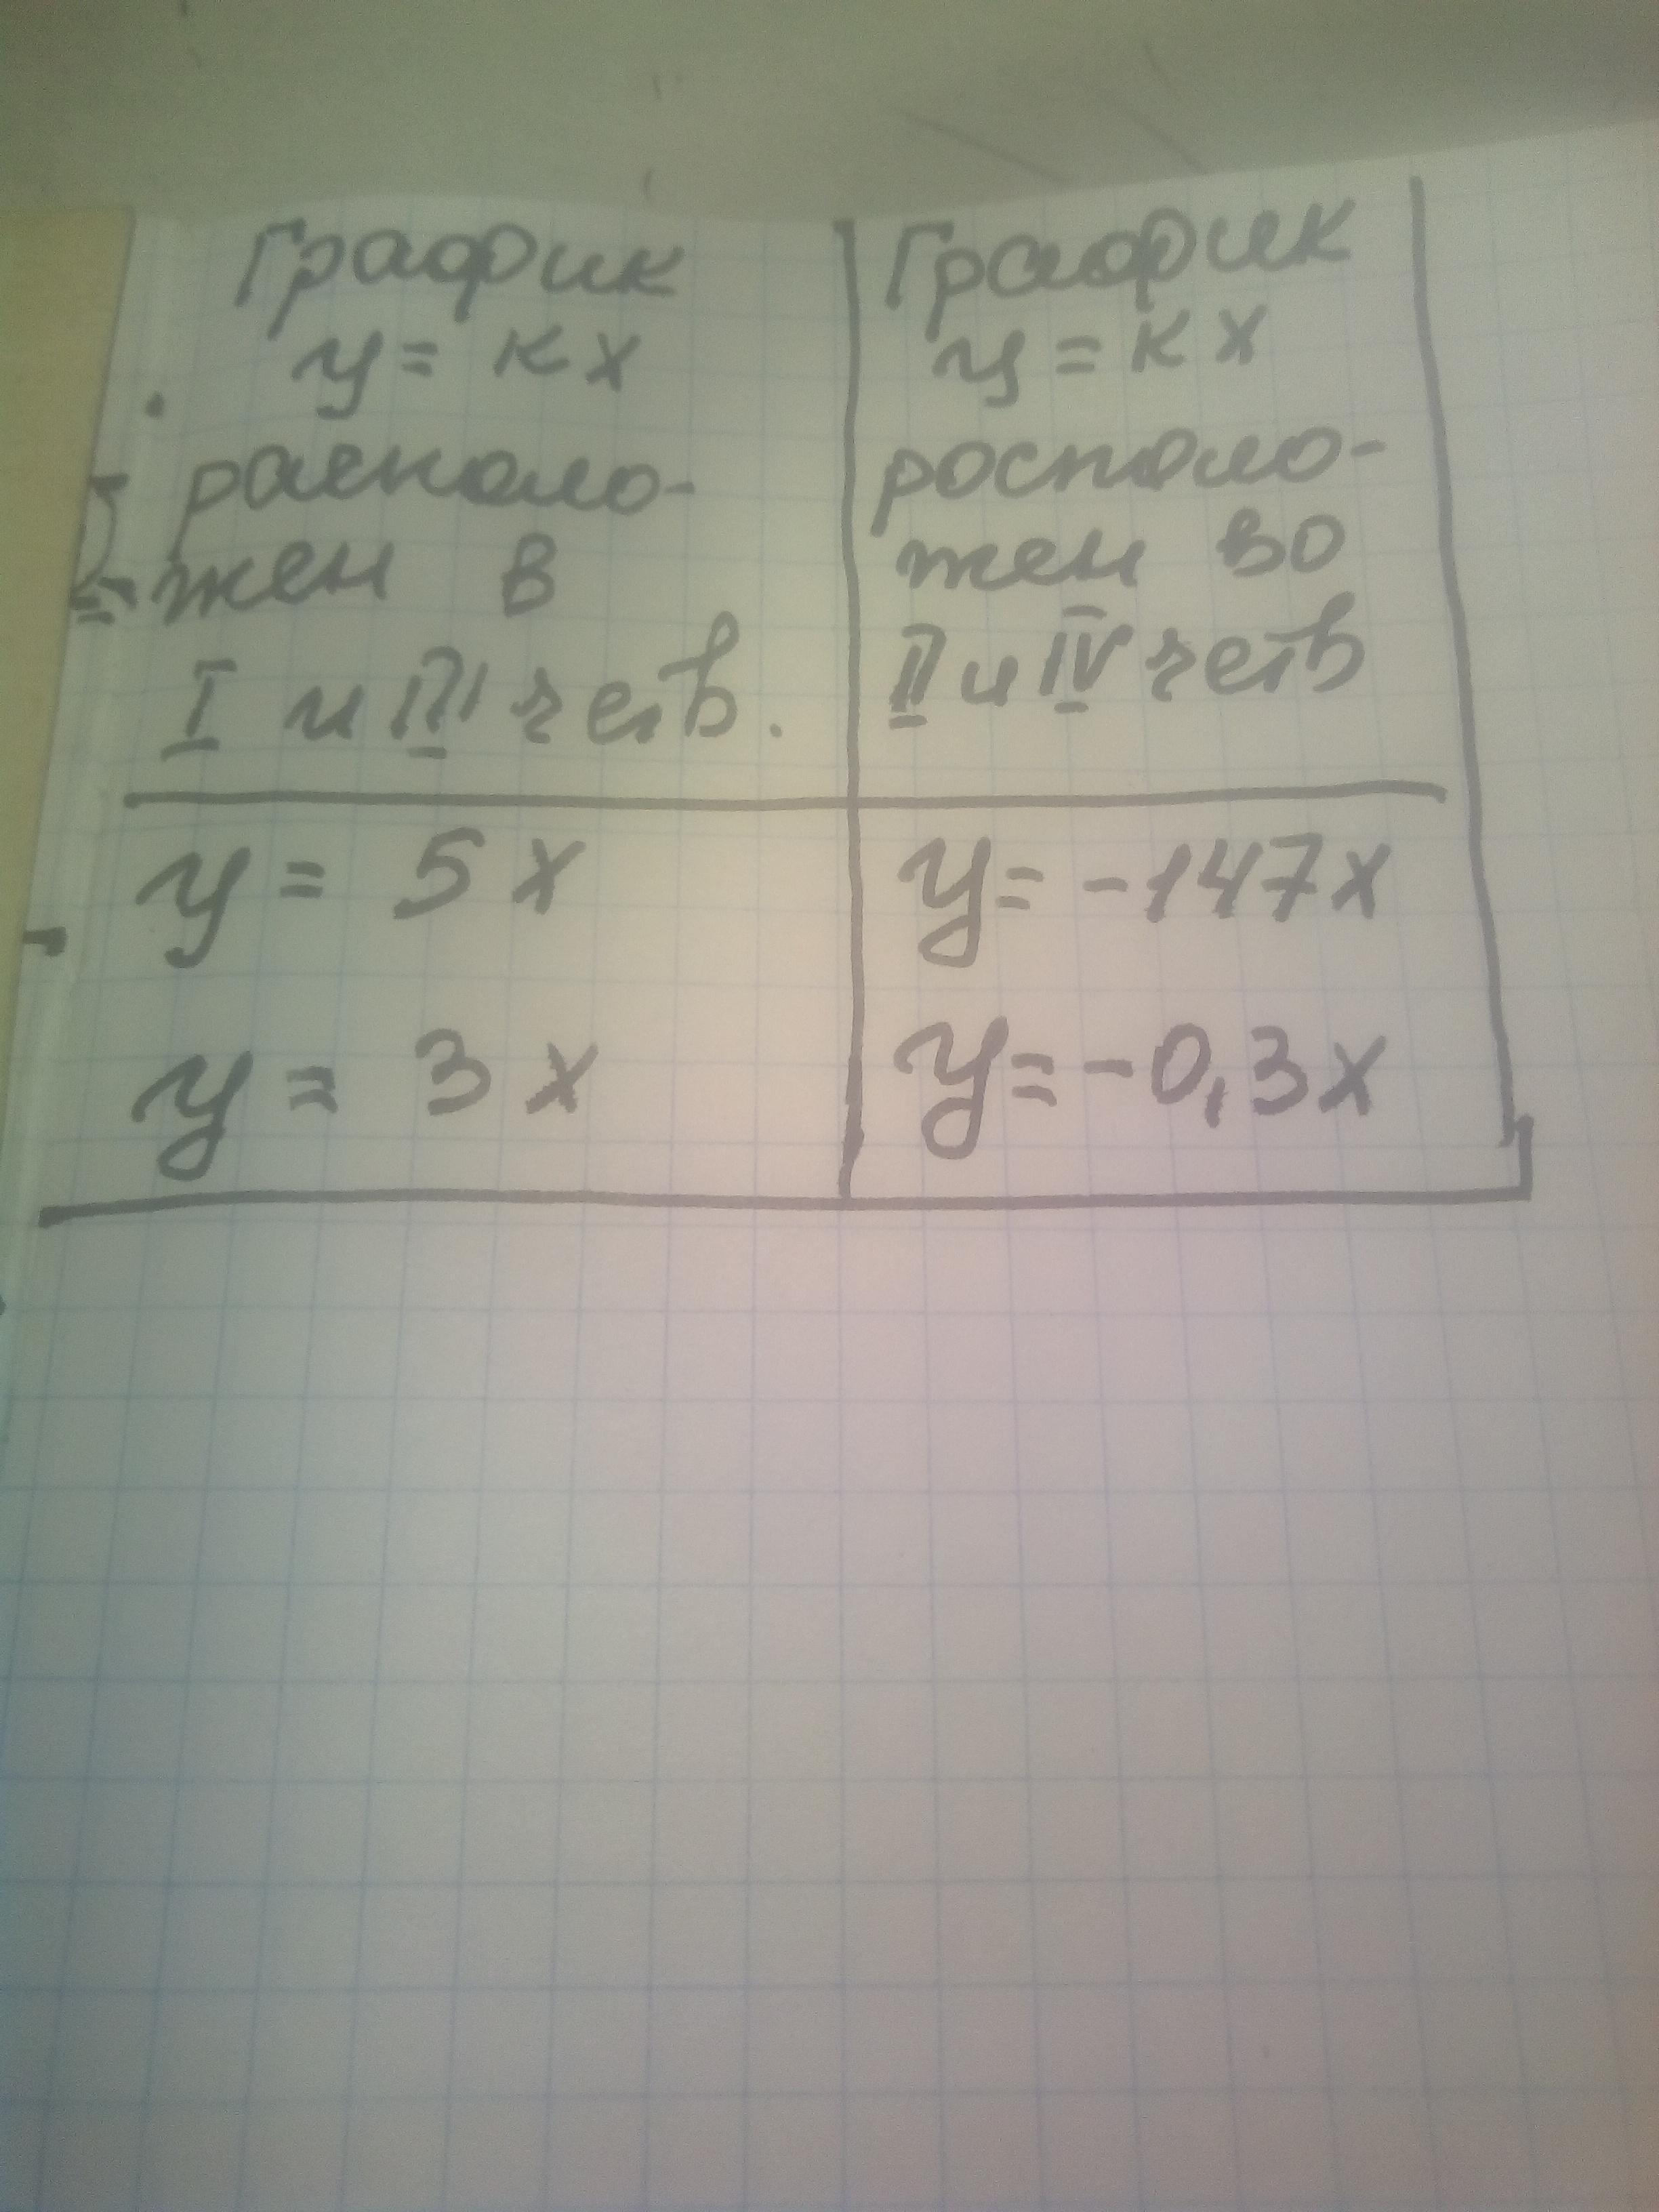 График
y = кx
располо-
жен в
I и III четв.
y = 5x
y = 3x
График
y = кx
росполо-
жен во
II и IV четв
y = -147x
y = -0,3x